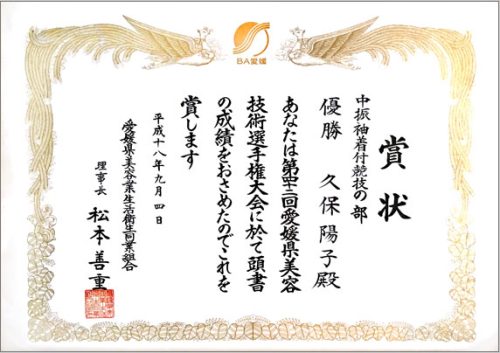 BA愛媛
賞状
中振袖着付競技の部
優勝 久保陽子殿
あなたは第四十二回愛媛県美容
技術選手権大会に於て頭書
の成績をおさめたのでこれを
賞します
平成十八年九月四日
愛媛県美容業生活衛生同業組合
理事長 松本善重